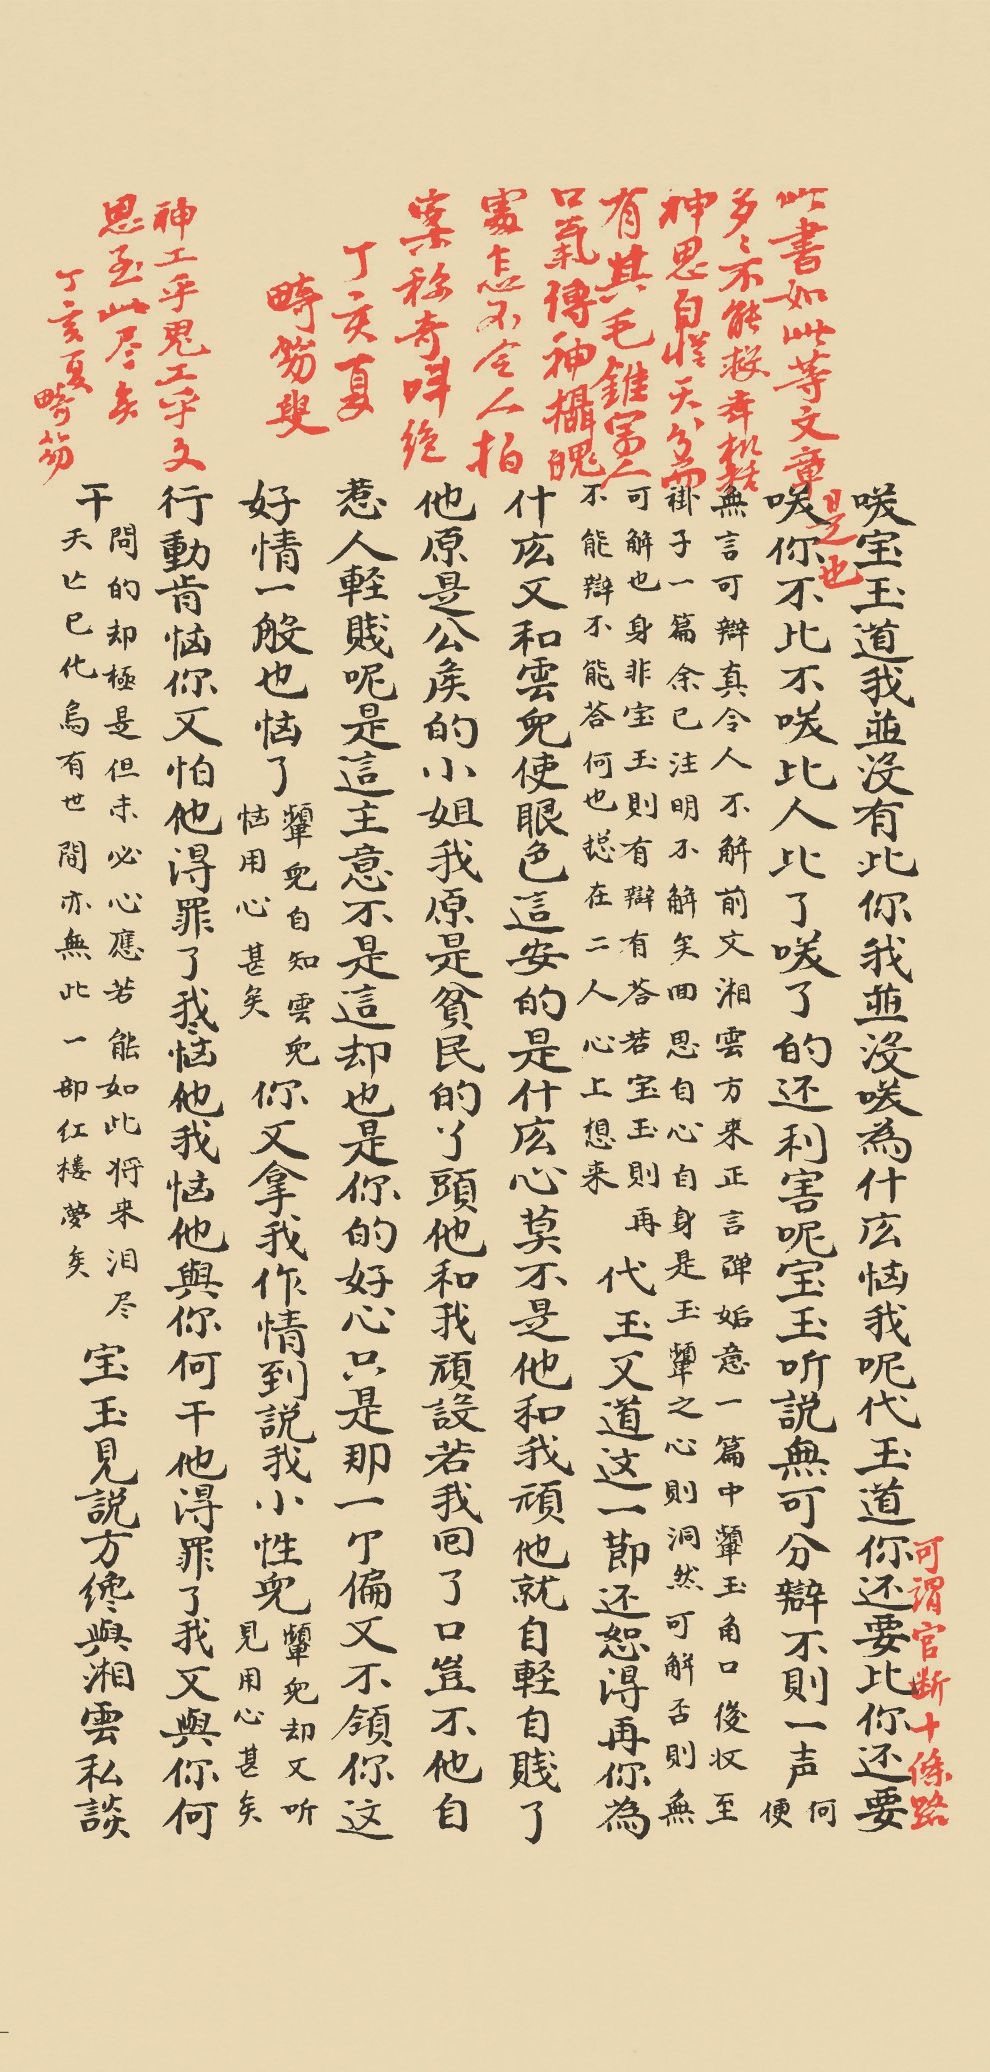 可謂官断十條路
咲宝玉道我並没有比你我並没咲為什庅恼我呢代玉道你还要比你还要
此書如此等文章
是也
咲你不比不咲比人比了咲了的还利害呢宝玉听説無可分辯不則一声
何
便
多〻不能枚舉機括
無言可辯真令人不解前文湘雲方来正言弹妬意一篇中顰玉角口後收至
神思自從天分而
褂子一篇余已注明不解矣回思自心自身是玉顰之心則洞然可解否則無
有其毛錐寫人
可解也身非宝玉則有辯有荅若宝玉則再
不能辯不能荅何也捴在二人心上想来
代玉又道这一莭还恕得再你為
口氣傳神攝魄
什庅又和雲兒使眼色這安的是什庅心莫不是他和我頑他就自軽自賤了
處怎不令人拍
案称奇叫絶
他原是公侯的小姐我原是貧民的丫頭他和我頑設若我回了口豈不他自
丁亥夏
惹人軽賤呢是這主意不是這却也是你的好心只是那一个偏又不領你这
畸笏叟
好情一般也恼了
顰兒自知雲兒
恼用心甚矣
你又拿我作情到説我小性兒
顰兒却又听
見用心甚矣
神工乎鬼工乎文
行動肯恼你又怕他得罪了我〻恼他我恼他與你何干他得罪了我又與你何
思至此尽矣
丁亥夏畸笏
干
問的却極是但未必心應若能如此将来泪尽
夭亡已化烏有世間亦無此一部红樓夢矣
宝玉見説方纔與湘雲私談